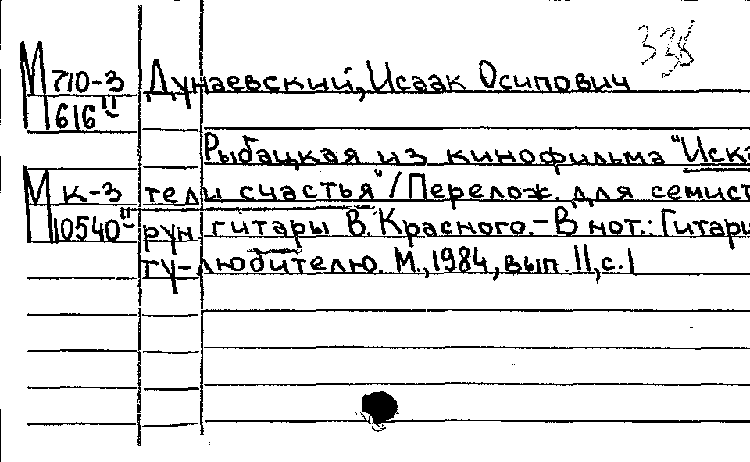 338
М 710-3 Дунаевский, Исаак Осипович
616 II
Рыбацкая из кинофильма "Иска
М К-3 тели счастья" / Перелож. для семист
10540 II рун. гитары В. Красного.-В нот.: Гитари
ту-любителю. М., 1984, вып. II, с. 1